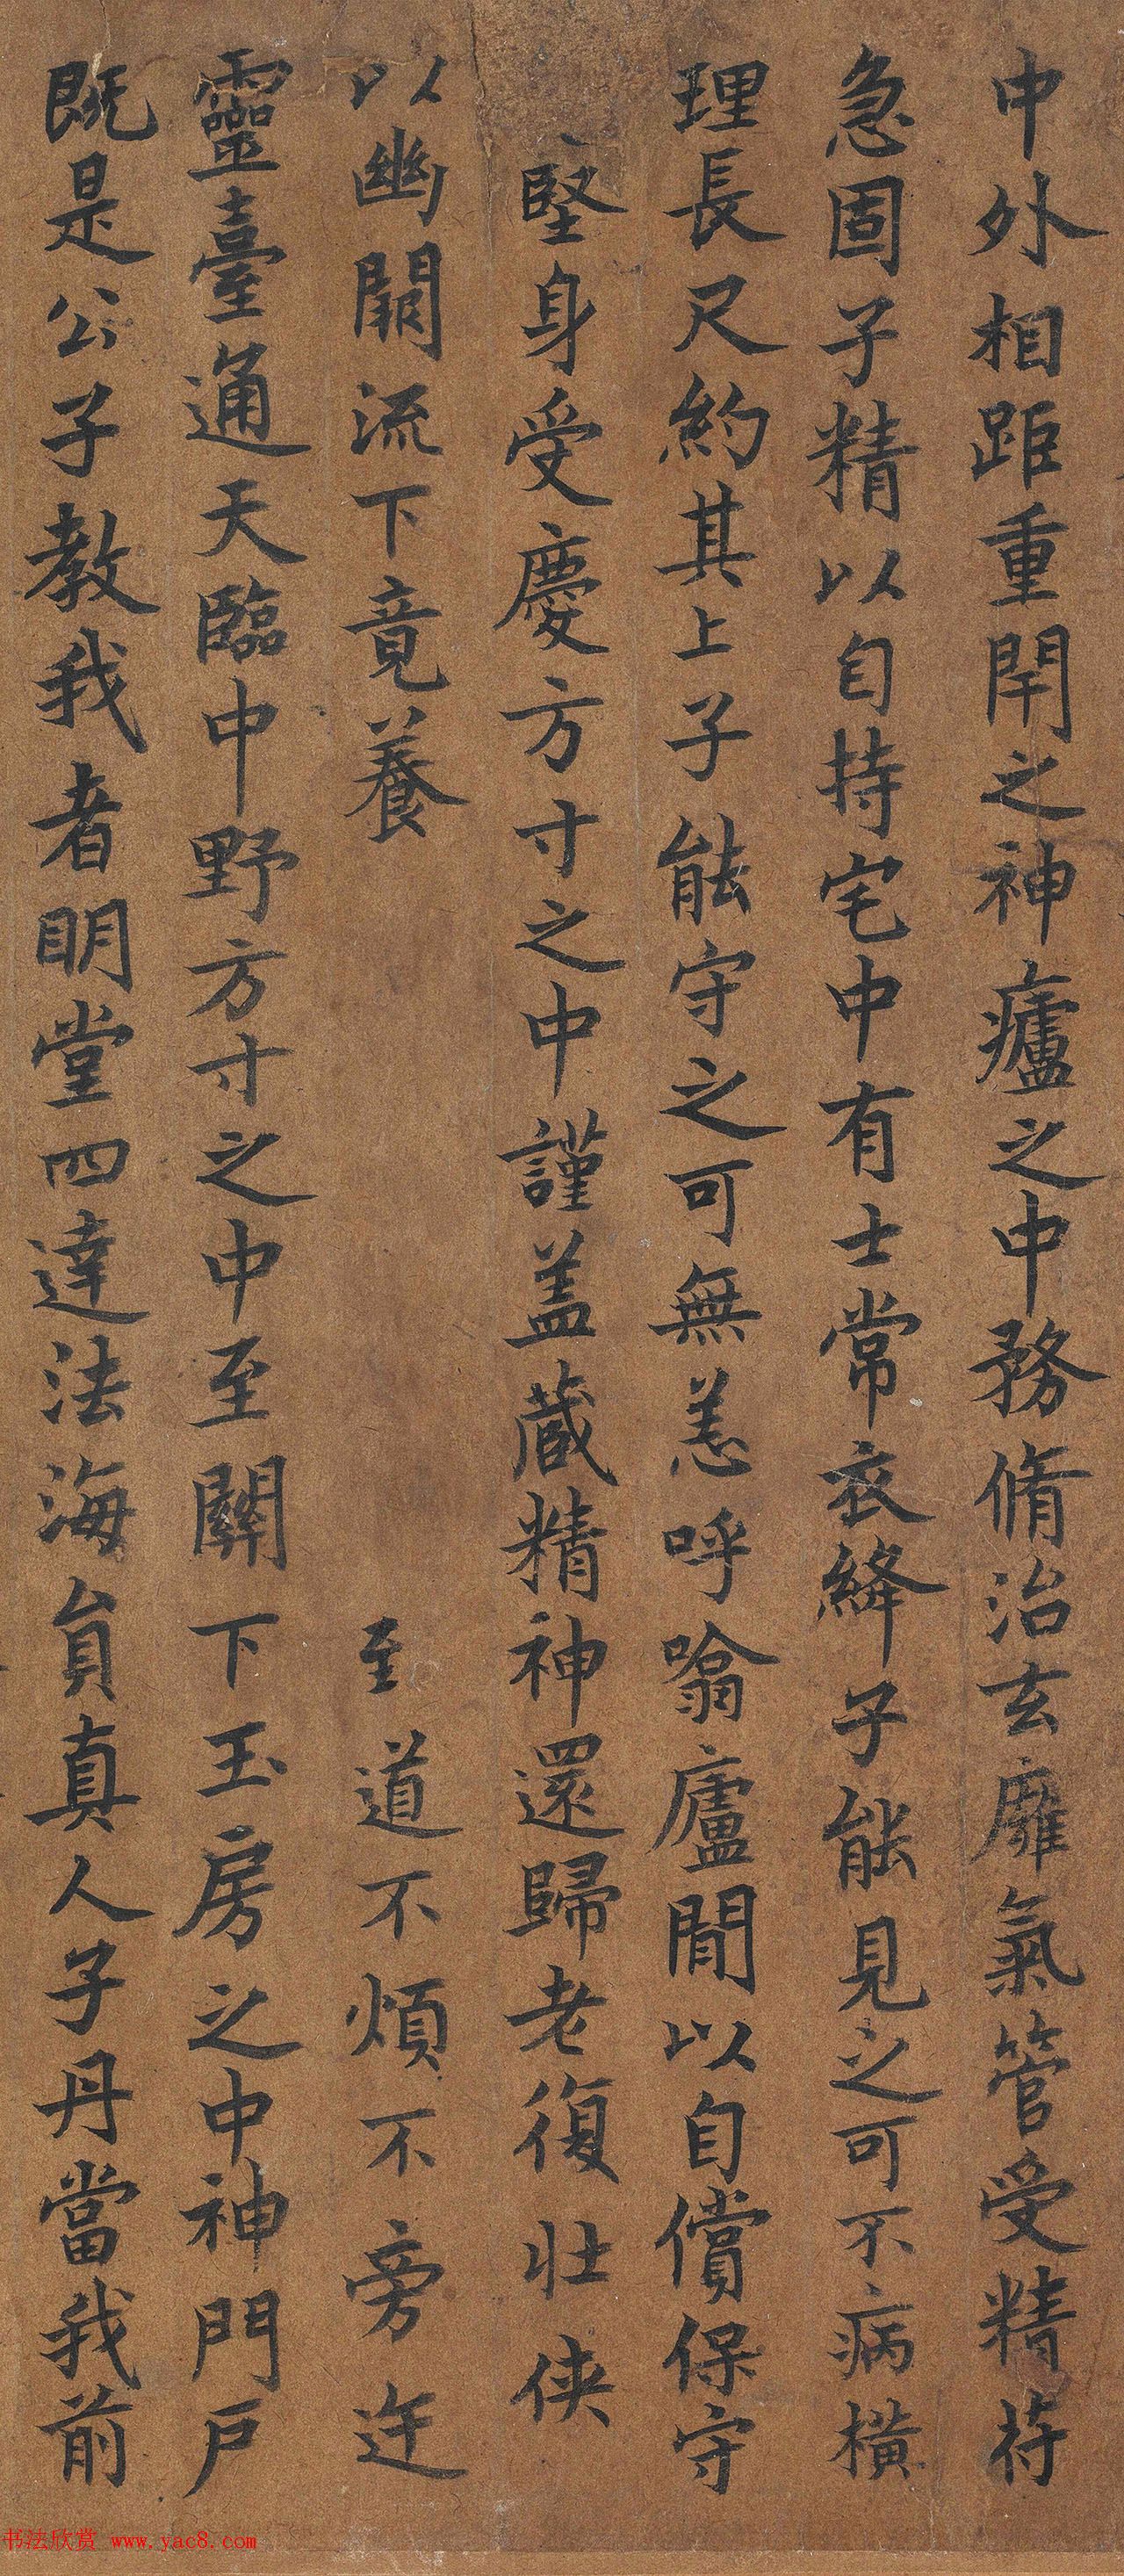 中外相距重閇之神廬之中務脩治玄廱氣管受精苻
急固子精以自持宅中有士常衣絳子能見之可不病橫
理長尺約其上子能守之可無恙呼噏廬間以自償保守
堅身受慶方寸之中謹盖藏精神還歸老復壯俠
以幽闕流下竟養 至道不煩不旁迕
靈臺通天臨中野方寸之中至關下玉房之中神門户
既是公子教我者明堂四達法海員真人子丹當我前
书法欣赏 www.yac8.com